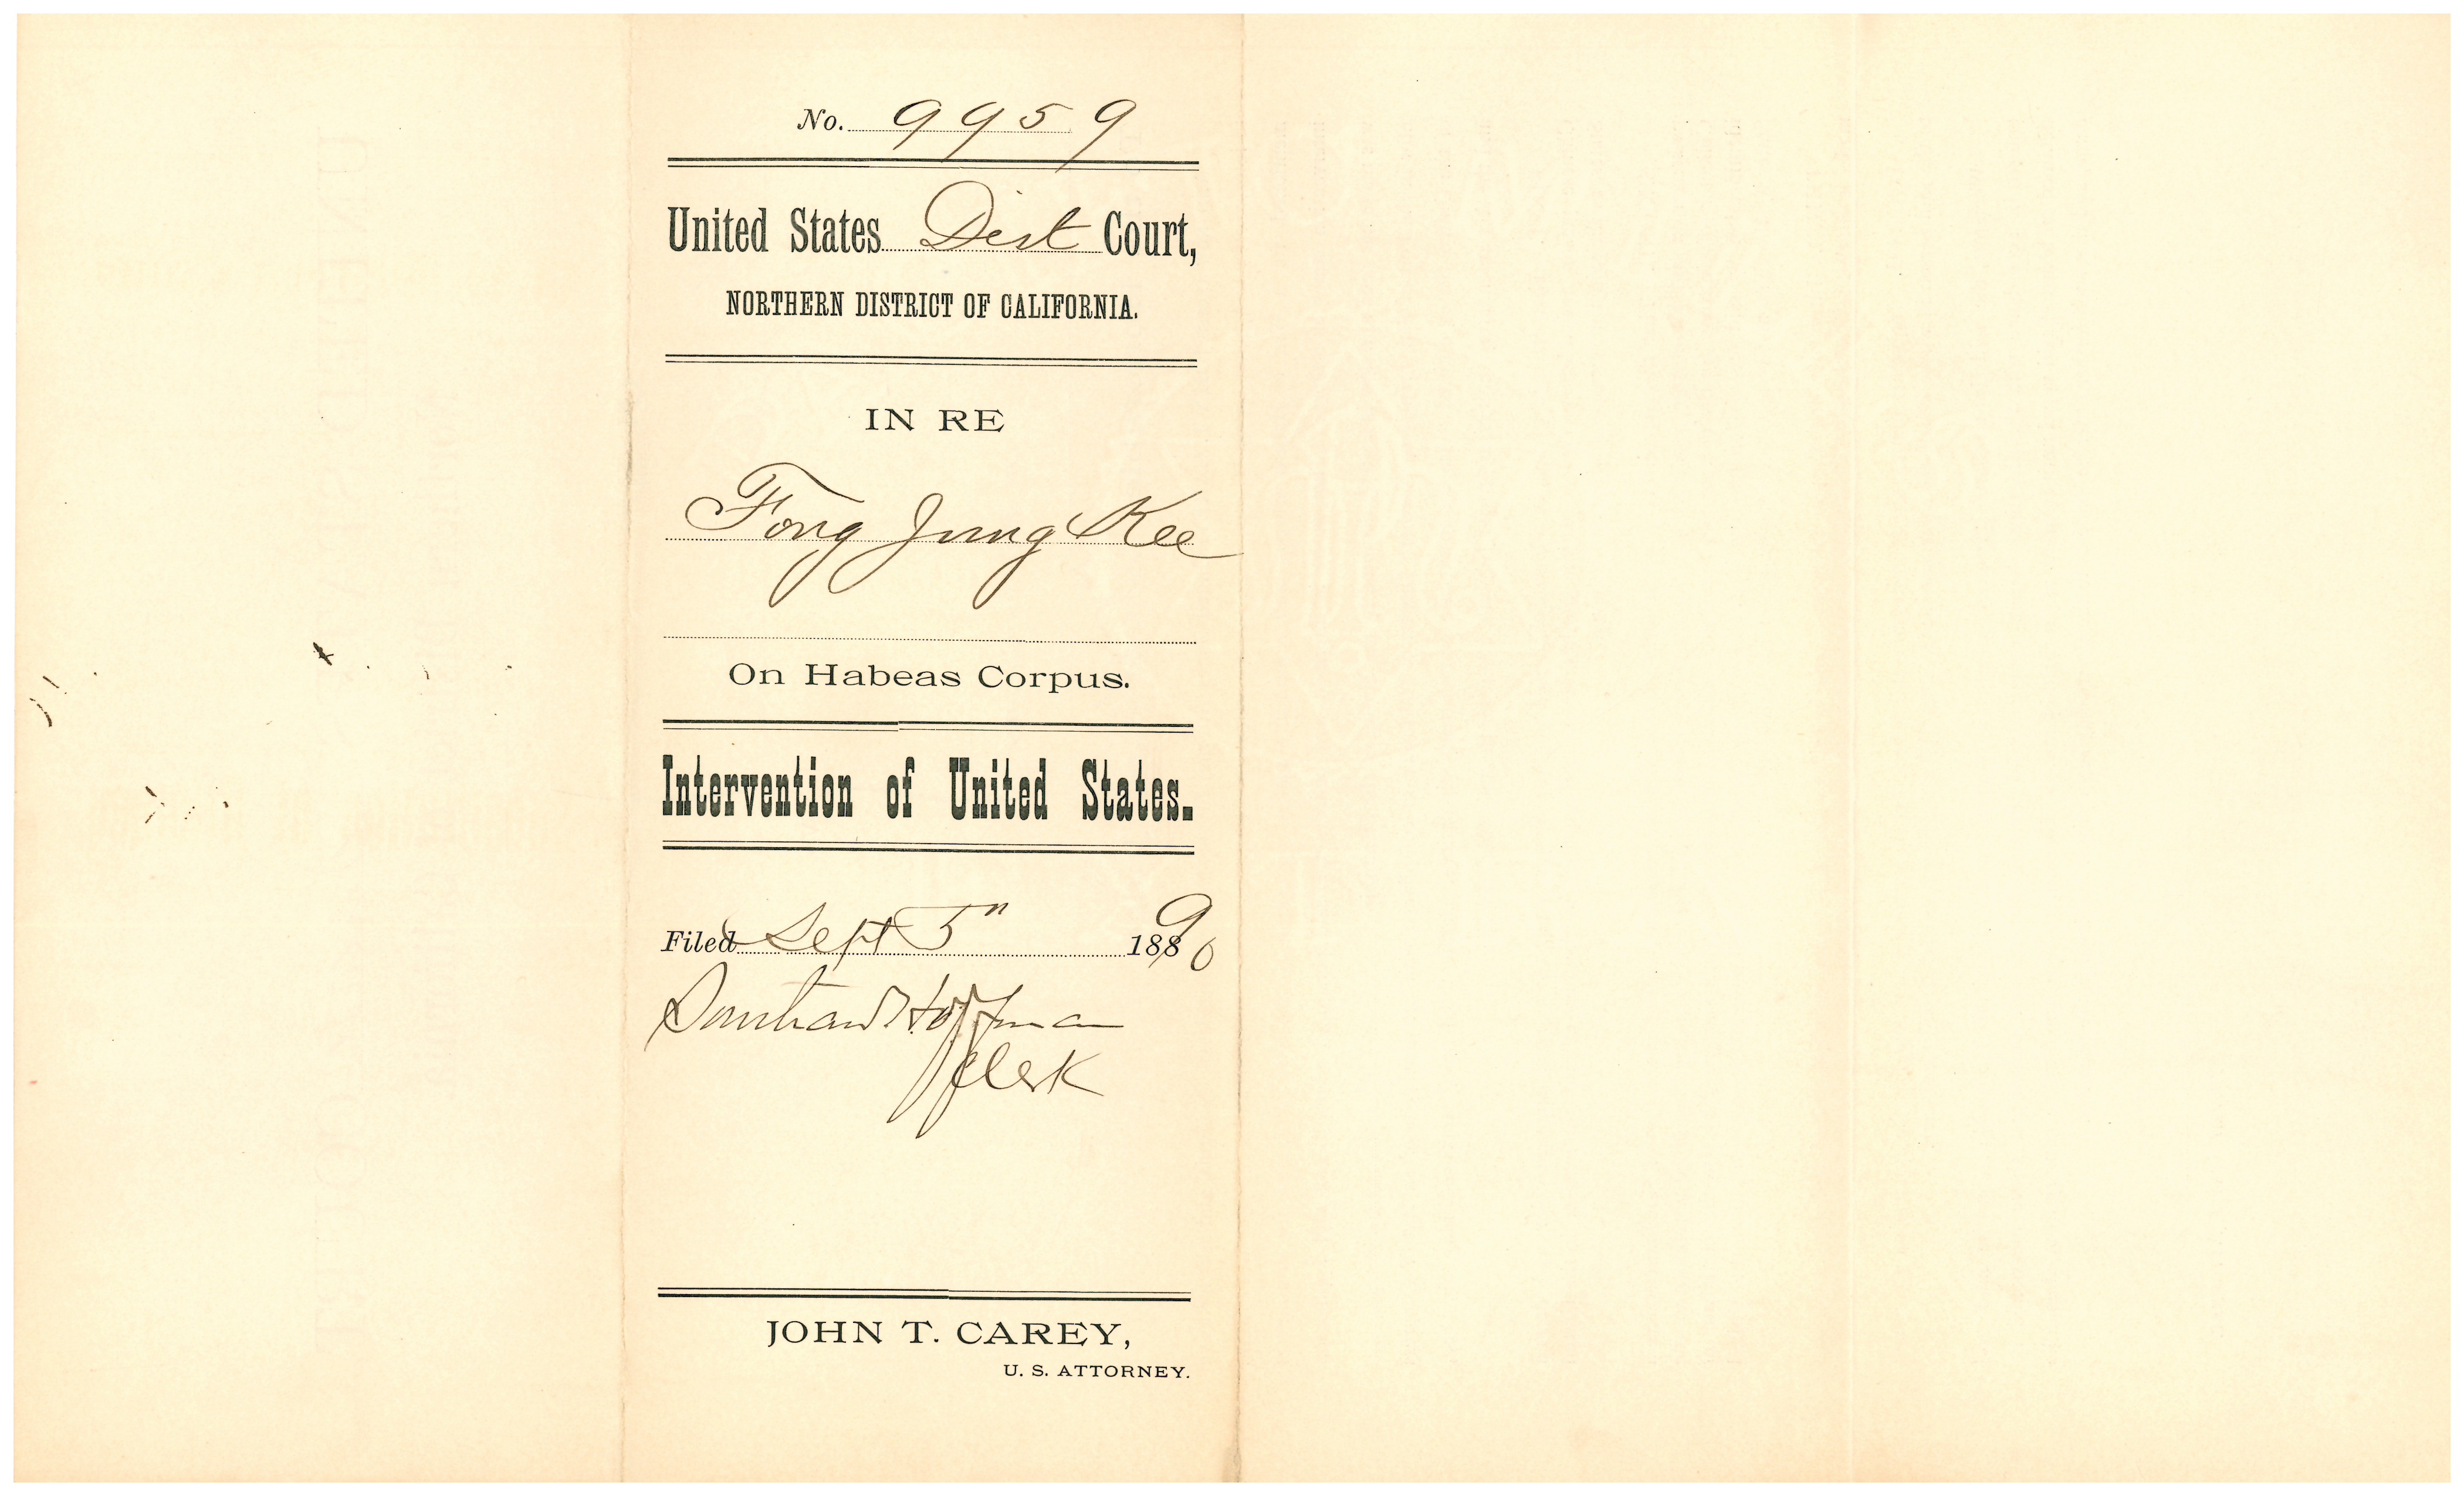 No. 9959
United States Dist Court,
NORTHERN DISTRICT OF CALIFORNIA.
IN RE
Fong Jung Kee
On Habeas Corpus.
Intervention of United States.
Filed Sept 5" 1890
Hoffman
Clerk
JOHN T. CAREY,
U. S. ATTORNEY.